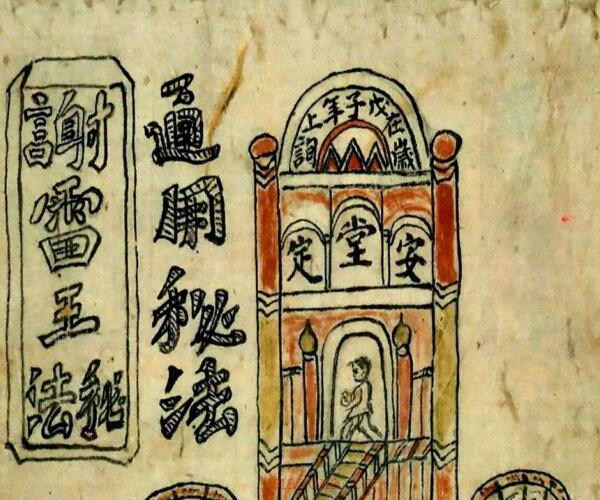 歲在戊子年上詞
安堂定
通用秘法
謝雷王秘法